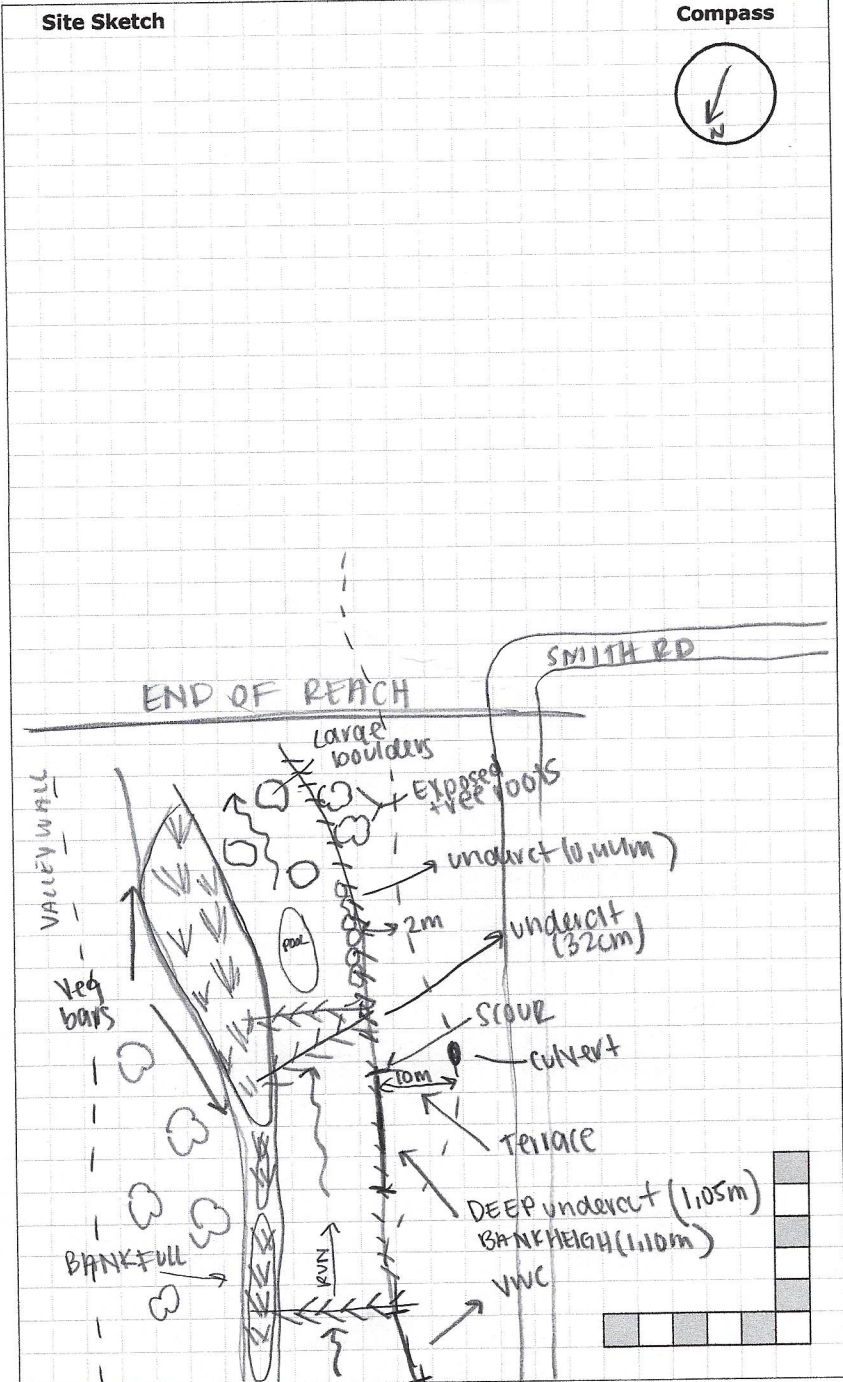 Site Sketch
Compass
N
SMITH RD
END OF REACH
Large
boulders
Exposed
tree roots
VALLEY WALL
undercut (0.44m)
2m
undercut
(32cm)
POOL
Veg
bars
SCOUR
culvert
10m
Terrace
DEEP undercut (1.05m)
BANKHEIGH (1.10m)
BANKFULL
RUN
VWC